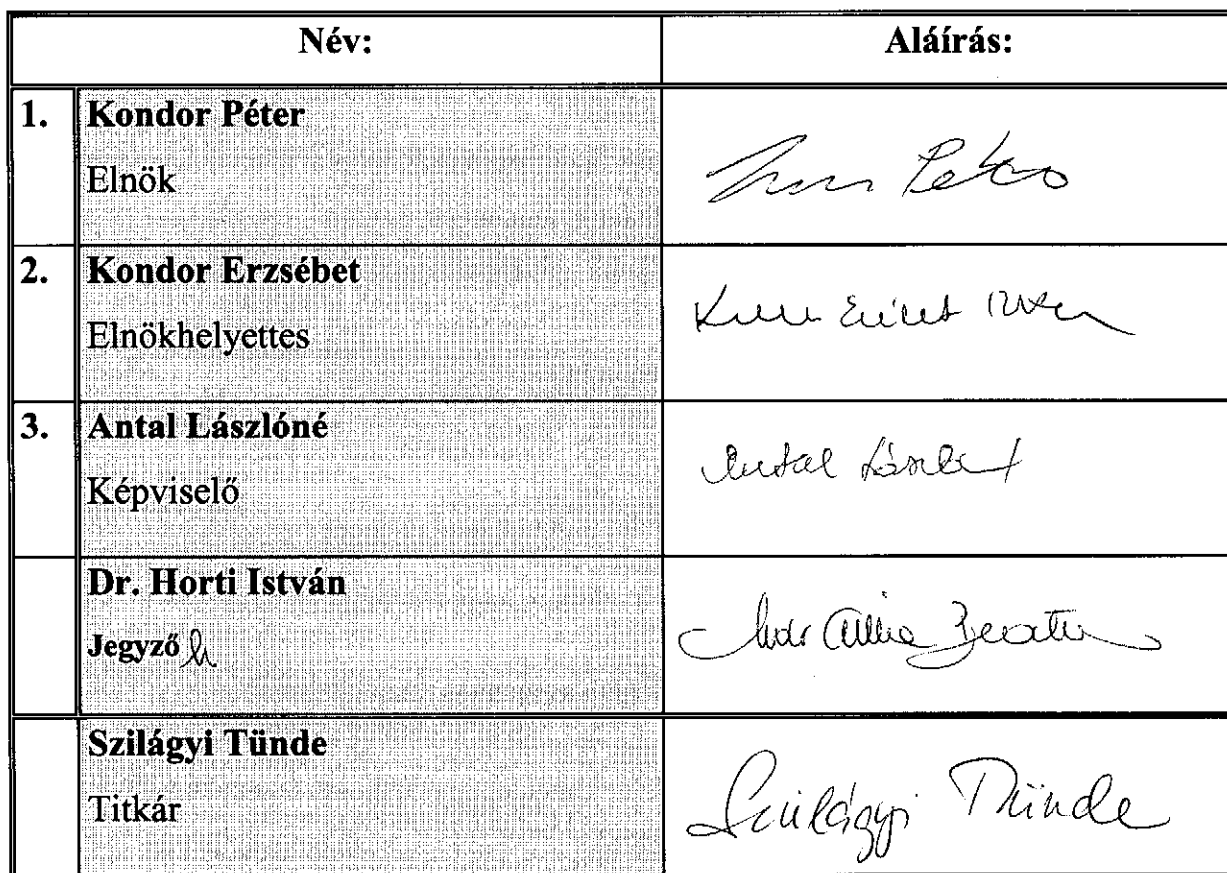 Név: Aláírás:
1. Kondor Péter
Elnök
Péter
2. Kondor Erzsébet
Elnökhelyettes
3. Antal Lászlóné
Képviselő
Antal Lászlóné
Dr. Horti István
Jegyző h
Beata
Szilágyi Tünde
Titkár
Szilágyi Tünde